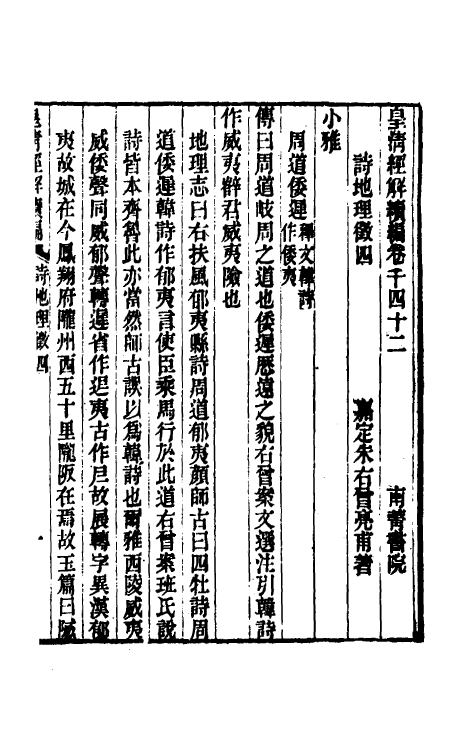 皇清經解續編卷千四十二　南菁書院
詩地理徵四　嘉定朱右曾亮甫著
小雅
周道倭遲釋文韓詩作倭夷
傳曰周道岐周之道也倭遲歷遠之貌右曾案文選注引韓詩
作威夷薛君威夷險也
地理志曰右扶風郁夷縣詩周道郁夷顏師古曰四牡詩周
道倭遲韓詩作郁夷言使臣乘馬行於此道右曾案班氏說
詩皆本齊魯此亦當然師古誤以爲韓詩也爾雅西陵威夷
威倭聲同威郁聲轉遲省作迟夷古作𡰥故展轉字異漢郁
夷故城在今鳳翔府隴州西五十里隴阪在焉故玉篇曰陝
皇清經解續編　詩地理徵四　一